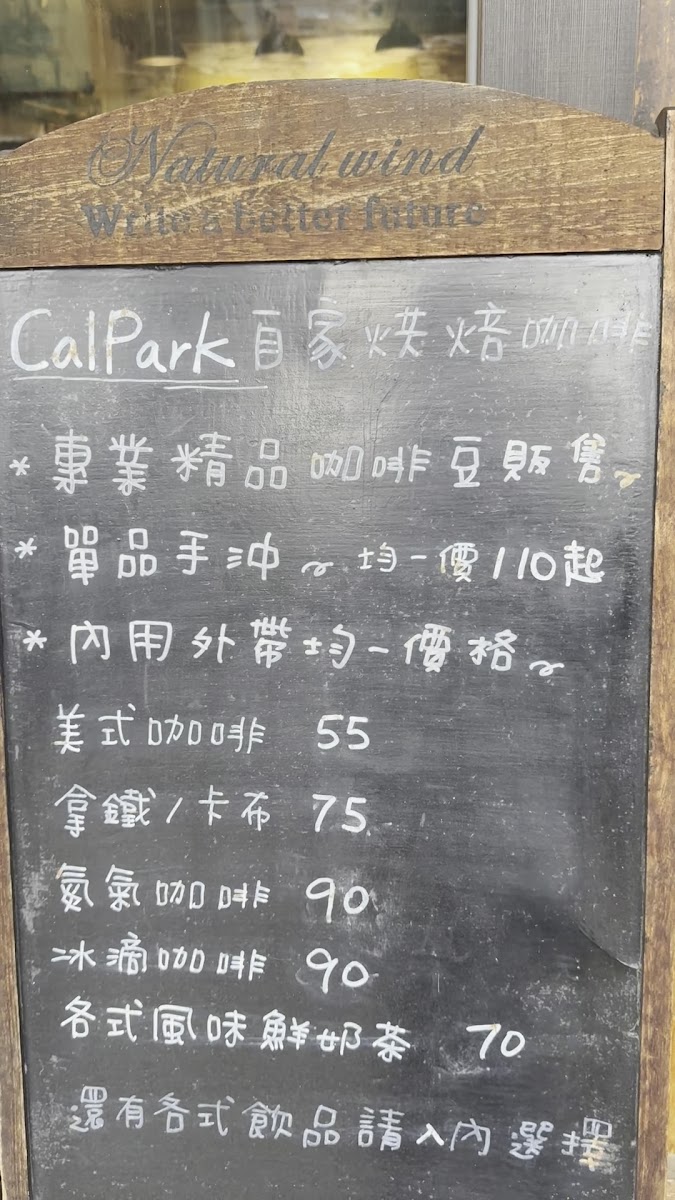 Natural wind
Write a better future
CalPark 自家烘焙咖啡
* 專業精品咖啡豆販售~
* 單品手沖~均一價110起
* 內用外帶均一價格~
美式咖啡 55
拿鐵/卡布 75
氮氣咖啡 90
冰滴咖啡 90
各式風味鮮奶茶 70
還有各式飲品請入內選擇